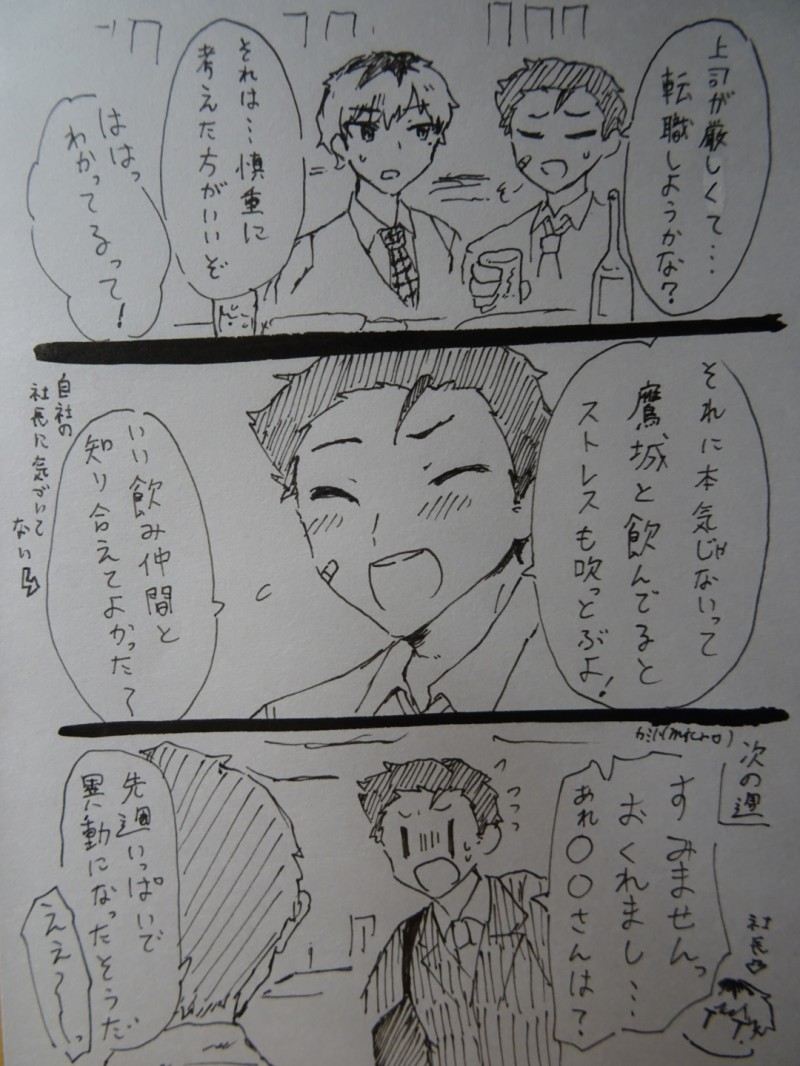 上司が厳しくて…
転職しようかな?
それは…慎重に
考えた方がいいぞ
ははっ
わかってるって!
それに本気じゃないって
鷹城と飲んでると
ストレスも吹っとぶよ!
いい飲み仲間と
知り合えてよかった〜
自社の
社長に気がいて
ない
次の週
すみませんっ
おくれまし…
あれ〇〇さんは?
社長
先週いっぱいで
異動になったそうだ
ええ〜っ